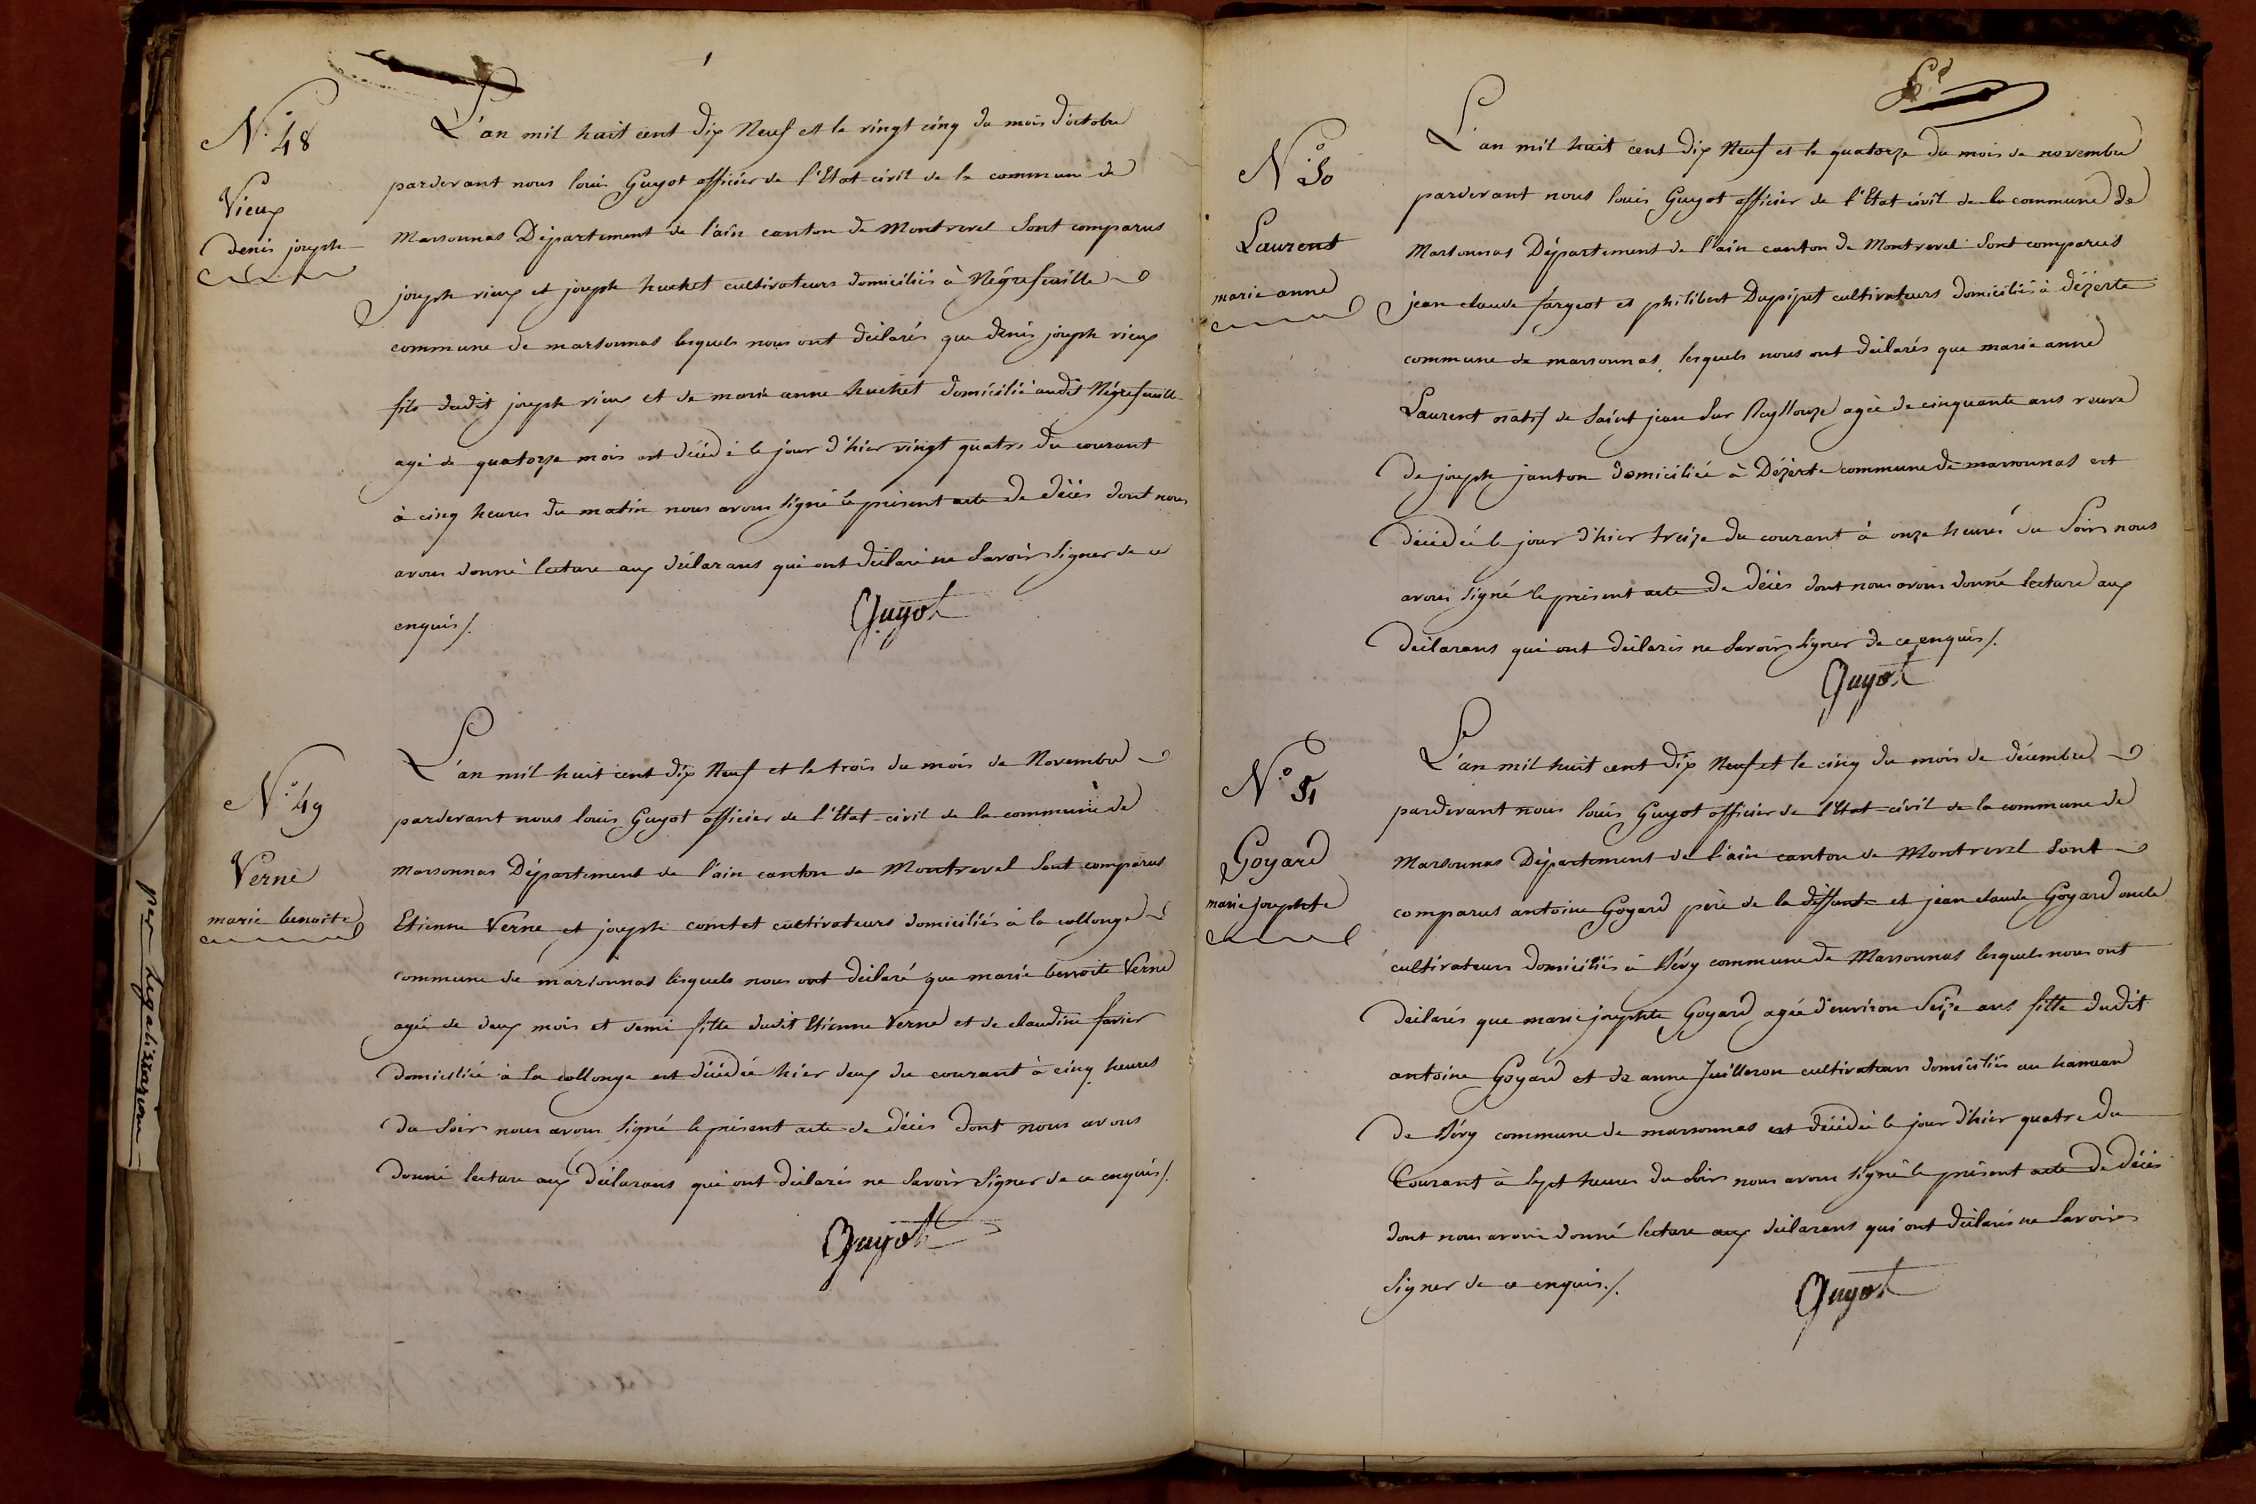 N.° 48
Vieux
denis joseph
L'an mil huit cent dix Neuf et le vingt cinq du mois d'octobre
pardevant nous louis Guyot officier de l'Etat-civil de la commune de
Marsonnas Département de l'ain canton de Montrevel Sont comparus
joseph vieux et joseph huchet cultivateurs domiciliés à Négrefeuille
commune de marsonnas lesquels nous ont déclarés que denis joseph vieux
fils dudit joseph vieux et de marie anne huchet domicilié audit Négrefeuille
agé de quatorze mois est décédé le jour d'hier vingt quatre du courant
à cinq heures du matin nous avons signé le présent acte de décès dont nous
avons donné lecture aux déclarans qui ont déclaré ne Savoir Signer de ce
enquis /.
Guyot
N.° 49
Verne
marie benoite
L'an mil huit cent dix Neuf et le trois du mois de Novembre
pardevant nous louis Guyot officier de l'Etat-civil de la commune de
Marsonnas Département de l'ain canton de Montrevel Sont comparus
Etienne Verne et joseph comtet cultivateurs domiciliés à la collonge
commune de marsonnas lesquels nous ont déclaré que marie benoite Verne
agée de deux mois et demi fille dudit Etienne Verne et de claudine favier
domiciliée à la collonge est décédée hier deux du courant à cinq heures
du Soir nous avons Signé le présent acte de décès dont nous avons
donné lecture aux déclarans qui ont déclarés ne Savoir Signer de ce enquis /.
Guyot
per Legalizzazione
N.° 50
Laurent
marie anne
L'an mil huit cent dix Neuf et le quatorze du mois de novembre
pardevant nous louis Guyot officier de l'Etat civil de la commune de
Marsonnas Département de l'ain canton de Montrevel Sont comparus
jean claude fargeot et philibert Dupijut cultivateurs domiciliés à dézerte
commune de marsonnas, lesquels nous ont déclarés que marie anne
Laurent natif de Saint jean Sur Reyssouze agée de cinquante ans veuve
de joseph janton domiciliée à Dézerte commune de marsonnas est
décédée le jour d'hier treize du courant à onze heures du Soir nous
avons Signé le présent acte de décès dont nous avons donné lecture aux
déclarans qui ont déclarés ne Savoir Signer de ce enquis /.
Guyot
N.° 51
Goyard
marie josephte
L'an mil huit cent dix Neuf et le cinq du mois de décembre
pardevant nous louis Guyot officier de l'Etat-civil de la commune de
Marsonnas Département de l'ain canton de Montrevel Sont
comparus antoine Goyard père de la deffunte et jean claude Goyard oncle
cultivateurs domiciliés à Févry commune de Marsonnas lesquels nous ont
déclarés que marie josephte Goyard agée d'environ Seize ans fille dudit
antoine Goyard et de anne Juilleron cultivateurs domiciliés au hameau
de commune de marsonnas est décédée le jour d'hier quatre du
Courant à Sept heures du Soir nous avons Signé le présent acte de décès
dont nous avons donné lecture aux déclarans qui ont déclarés ne Savoir
Signer de ce enquis /.
Guyot